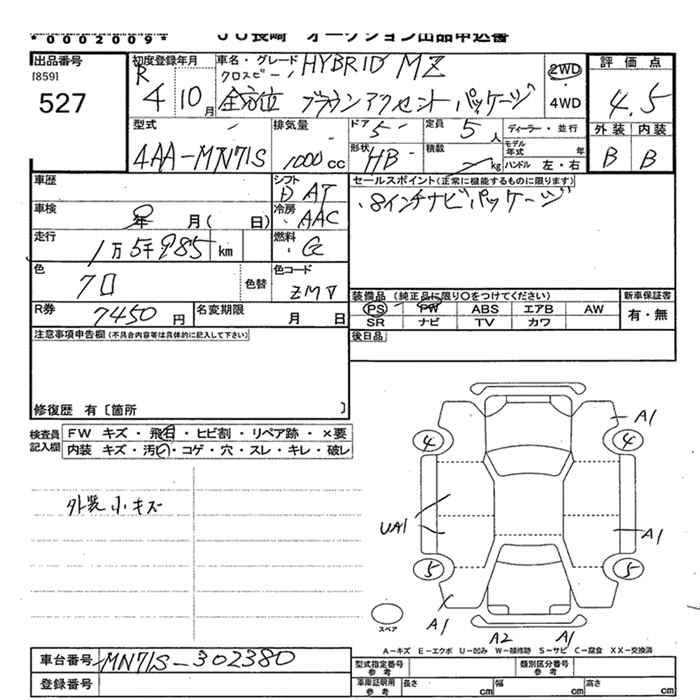 *0002009*
JU長崎 オークション出品申込書
出品番号
[859]
527
初度登録年月
R 4 10月
車名・グレード
クロスビー HYBRID MZ
全方位 ブラウンアクセントパッケージ
2WD
・
4WD
評価点
4.5
外装 内装
B B
型式
4AA-MN71S
排気量
1000cc
ドア
5
定員
5人
形状
HB
積載
kg
ディーラー・並行
モデル年式 年
ハンドル 左・右
車歴
シフト
D AT
車検
0 年 月( 日)
冷房
AAC
走行
1万5千985 km
燃料
G
色
クロ
色替
色コード
ZMV
R券
7450円
名変期限
月 日
セールスポイント(正常に機能するものに限ります)
8インチナビパッケージ
装備品 (純正品に限り○をつけてください)
PS PW ABS エアB AW
SR ナビ TV カワ
新車保証書
有・無
後日品
注意事項申告欄(不具合内容等は具体的に記入して下さい)
修復歴 有〔箇所 〕
検査員記入欄
FW キズ・飛石・ヒビ割・リペア跡・×要
内装 キズ・汚レ・コゲ・穴・スレ・キレ・破レ
外装小キズ
4 4
A1
UA1
A1
5 5
A1
A2
A1
スペア
A-キズ E-エクボ U-凹み W-補修跡 S-サビ C-腐食 XX-交換済
車台番号
MN71S-302380
登録番号
型式指定番号
参考
類別区分番号
参考
車庫証明用
参考
長さ cm
幅 cm
高さ cm